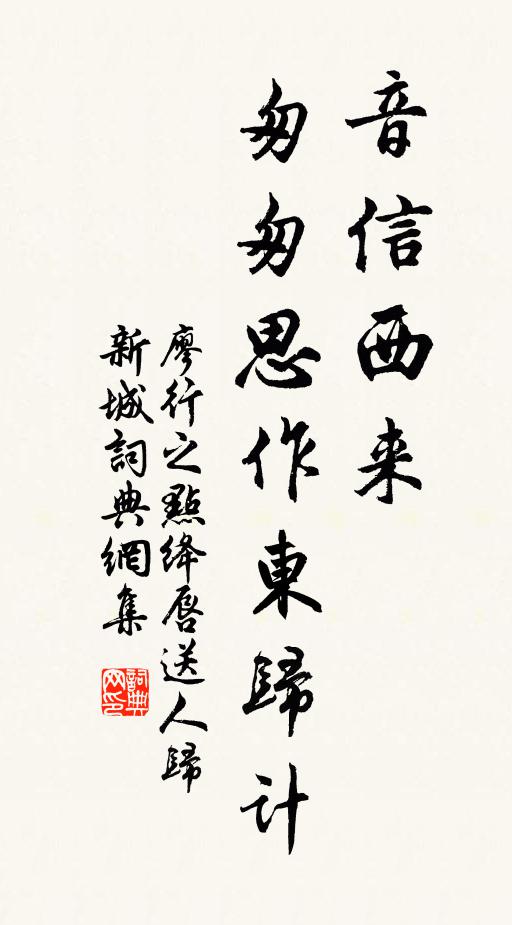 音信西来
匆匆思作東歸計
廖行之點絳唇送人歸
新城詞典網集
詞典网印